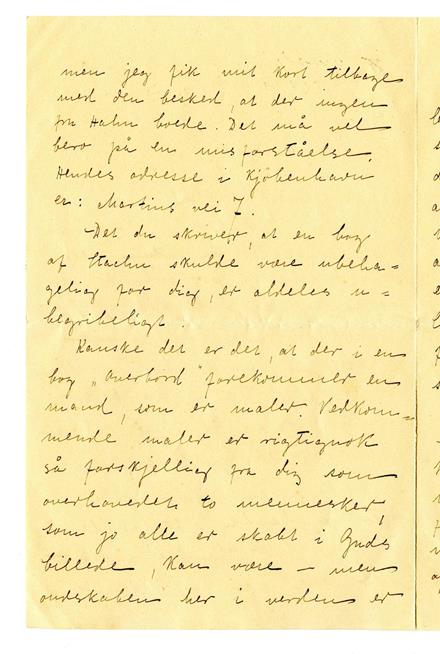 men jeg fik mit kort tilbage
med den besked, at der ingen
fru Hahn boede. Det må vel
bero på en misforståelse.
Hendes adresse i Kjöbenhavn
er: Martins vei 7.
Det du skriver, at en bog
af Stachu skulde være ubeha=
gelig for dig, er aldeles u=
begribeligt.
Kanske det er det, at der i en
bog „Overbord" forekommer en
mand, som er maler. Vedkom=
mende maler er rigtignok
så forskjellig fra dig som
overhovedet to mennesker,
som jo alle er skabt i Guds
billede, kan være – men
ondskaben her i verden er